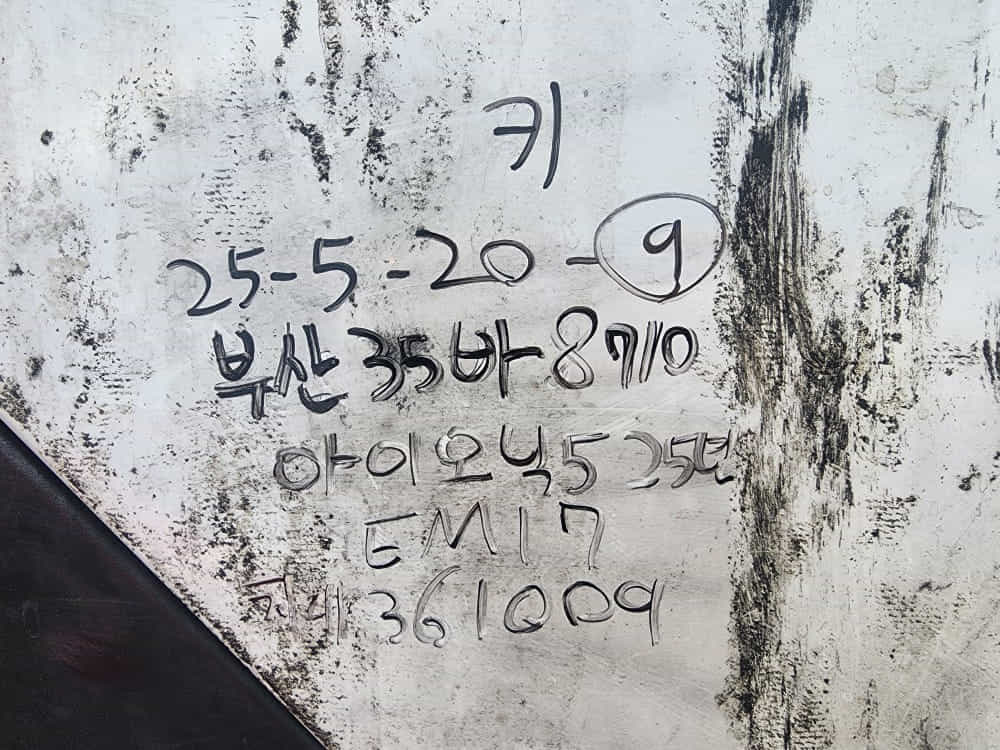 키
25-5-20-9
부산35바8710
아이오닉5 25년
EM17
차대361009